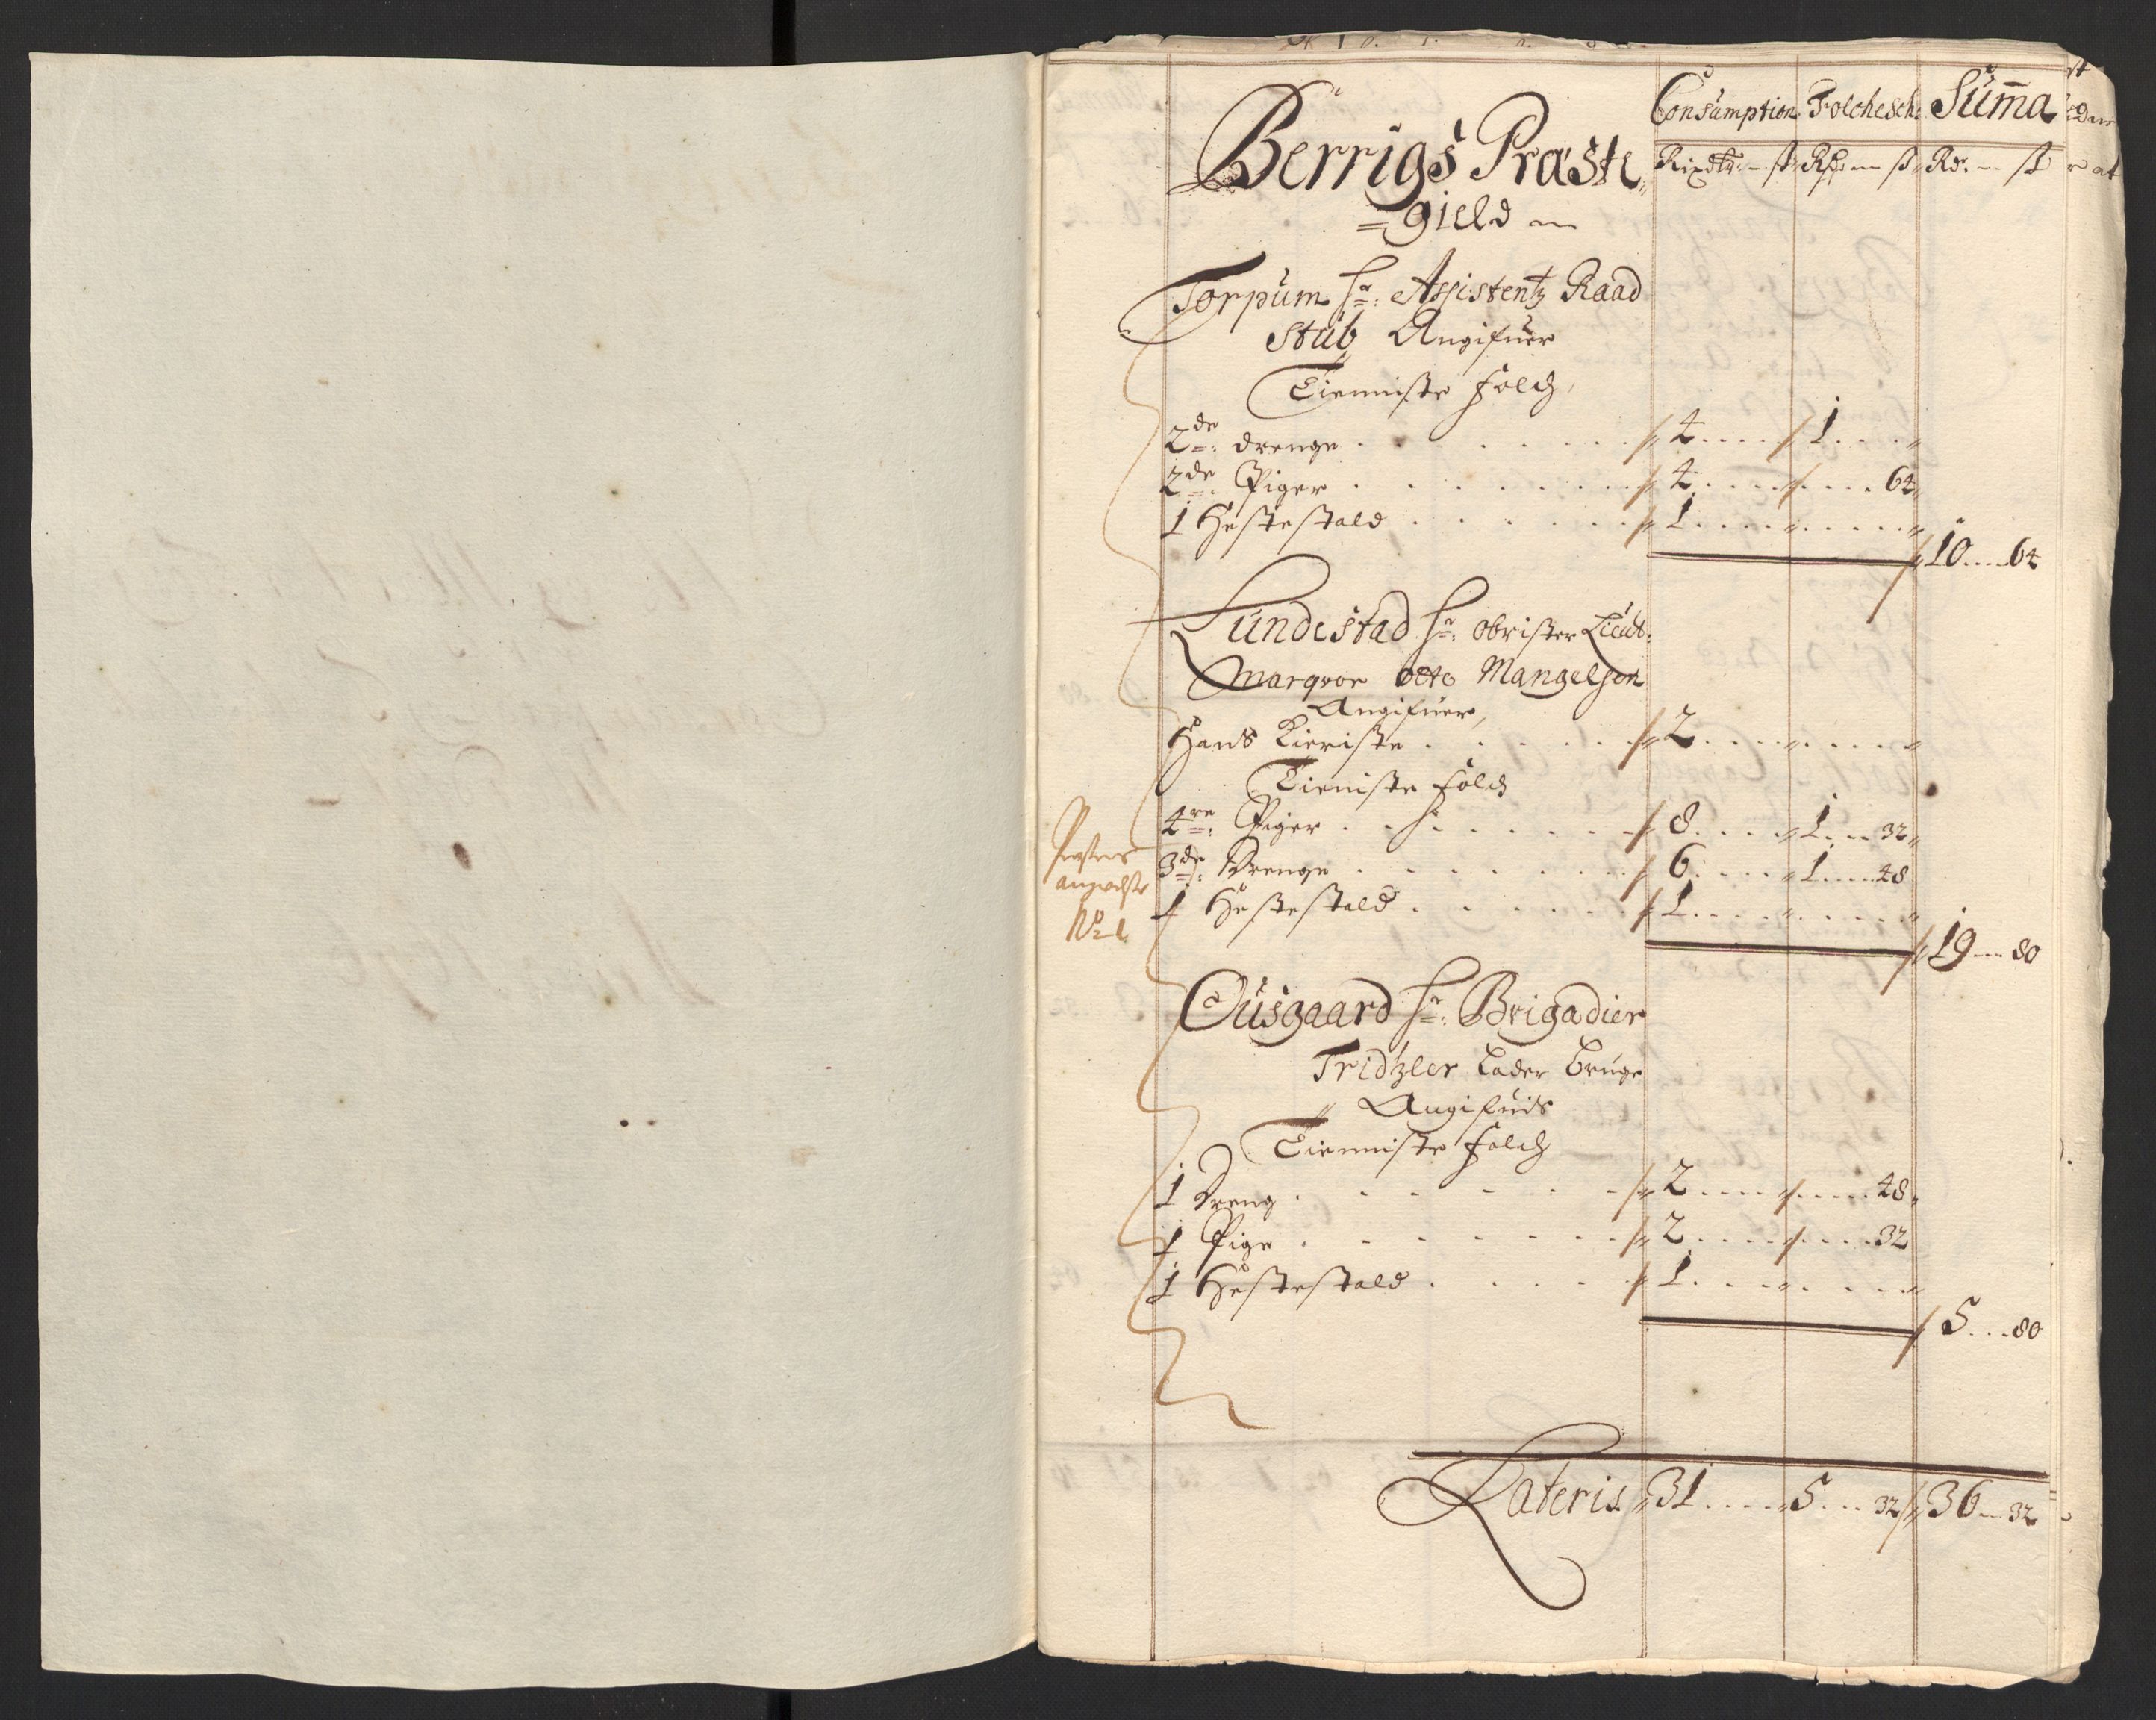 Consumption Folchesch: Summa
Berrigs Præste
Rixdlr: – ß Rdr – ß Rd: – ß
=gield
Torpum hr: Assistentz Raad
Stub Angifuer
Tienniste folch,
2de: drenge . . . 4 . . . 1 . . . „
2de: Piger . . . 4 . . . . . . 64
1 Hestestald . . . 1 . . . „ . . . „
10 . . . 64
Lundestad hr: obrister Lieut:
Marqvor otto Mangelsen
Angifuer,
Hans Kieriste . . . 2 . . . „ . . . „
Tieniste folch
4re: Piger . . . 8 . . . 1 . . . 32
3de: Drenge . . . 6 . . . 1 . . . 48
1 Hestestald . . . 1 . . . „ . . . „
19 . . . 80
No 1
Ousgaard hr: Brigadier
Tridzler Lader bruge
Angifuis
Tienniste folch
1 Dreng . . . 2 . . . . . . 48
1 Pige . . . 2 . . . . . . 32
1 Hestestald . . . 1 . . . „ . . . „
5 . . . 80
Lateris 31 . . . 5 . . . 32 36 – 32